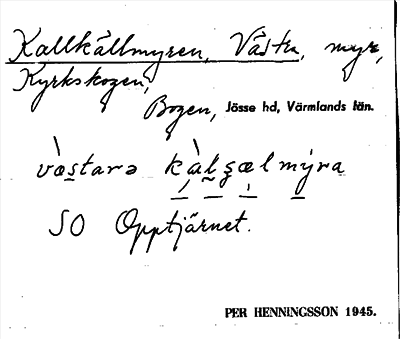 Kallkällmyren, Västra, myr,
Kyrkskogen,
Bogen, Jösse hd, Värmlands län.
væ̀stara kàlçælmýra
SO Opptjärnet.
PER HENNINGSSON 1945.